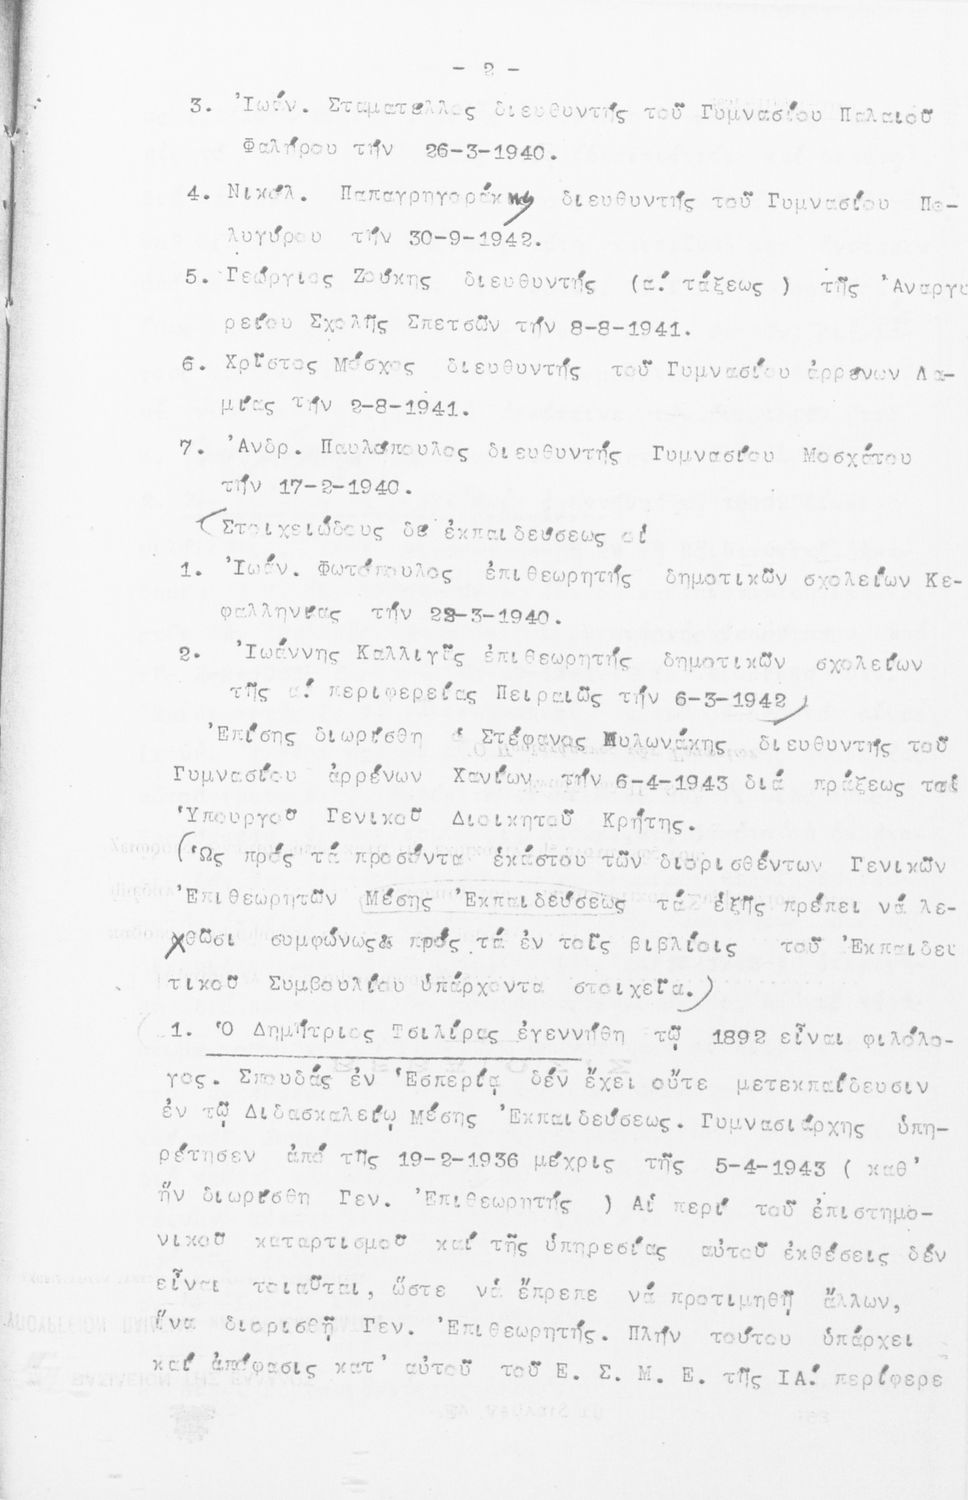 - 2 -
3. Ἰωάν. Σταματέλλος διευθυντής τοῦ Γυμνασίου Παλαιοῦ
Φαλήρου τήν 26-3-1940.
4. Νικόλ. Παπαγρηγοράκης διευθυντής τοῦ Γυμνασίου Πο-
λυγύρου τήν 30-9-1942.
5. Γεώργιος Ζούκης διευθυντής (α΄ τάξεως ) τῆς Ἀναργυ
ρείου Σχολῆς Σπετσῶν τήν 8-8-1941.
6. Χρῖστος Μόσχος διευθυντής τοῦ Γυμνασίου ἀρρένων Λα-
μίας τήν 2-8-1941.
7. Ἀνδρ. Παυλόπουλος διευθυντής Γυμνασίου Μοσχάτου
τήν 17-2-1940.
(Στοιχειώδους δέ ἐκπαιδεύσεως οἱ
1. Ἰωάν. Φωτόπουλος ἐπιθεωρητής δημοτικῶν σχολείων Κε-
φαλληνίας τήν 22-3-1940.
2. Ἰωάννης Καλλιγᾶς ἐπιθεωρητής δημοτικῶν σχολείων
τῆς α΄ περιφερείας Πειραιῶς τήν 6-3-1942)
Ἐπίσης διωρίσθη ὁ Στέφανος Μυλωνάκης διευθυντής τοῦ
Γυμνασίου ἀρρένων Χανίων τήν 6-4-1943 διά πράξεως τοῦ
Ὑπουργοῦ Γενικοῦ Διοικητοῦ Κρήτης.
(Ὡς πρός τά προσόντα ἑκάστου τῶν διορισθέντων Γενικῶν
Ἐπιθεωρητῶν Μέσης Ἐκπαιδεύσεως τά ἑξῆς πρέπει νά λε-
χθῶσι συμφώνως πρός τά ἐν τοῖς βιβλίοις τοῦ Ἐκπαιδευ
τικοῦ Συμβουλίου ὑπάρχοντα στοιχεῖα.)
1. Ὁ Δημήτριος Τσιλίρας ἐγεννήθη τῷ 1892 εἶναι φιλόλο-
γος. Σπουδάς ἐν Ἑσπερίᾳ δέν ἔχει οὔτε μετεκπαίδευσιν
ἐν τῷ Διδασκαλείῳ Μέσης Ἐκπαιδεύσεως. Γυμνασιάρχης ὑπη-
ρέτησεν ἀπό τῆς 19-2-1936 μέχρις τῆς 5-4-1943 ( καθ'
ἥν διωρίσθη Γεν. Ἐπιθεωρητής ) Αἱ περί τοῦ ἐπιστημο-
νικοῦ καταρτισμοῦ καί τῆς ὑπηρεσίας αὐτοῦ ἐκθέσεις δέν
εἶναι τοιαῦται, ὥστε νά ἔπρεπε νά προτιμηθῇ ἄλλων,
ἵνα διορισθῇ Γεν. Ἐπιθεωρητής. Πλήν τούτου ὑπάρχει
καί ἀπόφασις κατ' αὐτοῦ τοῦ Ε. Σ. Μ. Ε. τῆς ΙΑ΄ περιφερε